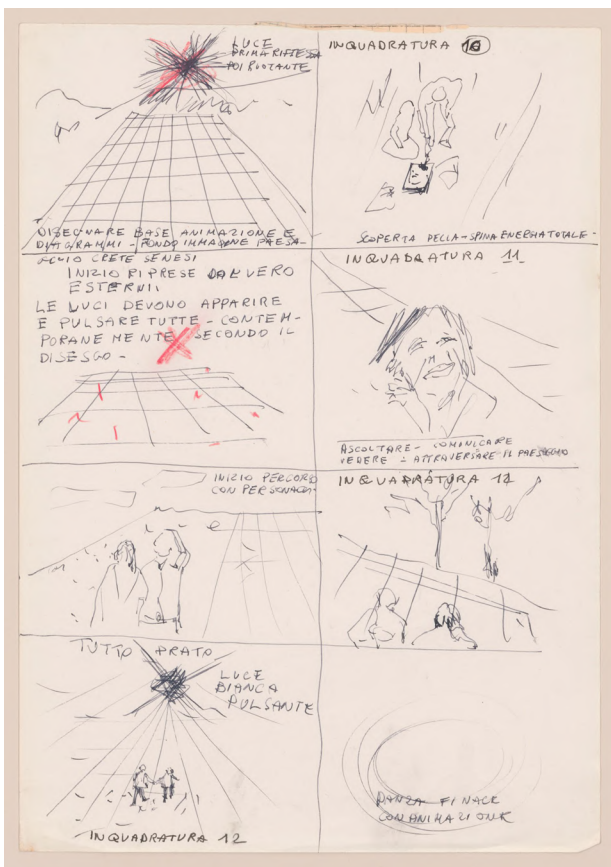 LUCE
PRIMA RIFLESSA
POI RUOTANTE
DISEGNARE BASE ANIMAZIONE E
DIAGRAMMI - FONDO IMMAGINE PAESA-
GGIO CRETE SENESI
INIZIO RIPRESE DAL VERO
ESTERNI
LE LUCI DEVONO APPARIRE
E PULSARE TUTTE - CONTEM-
PORANEMENTE SECONDO IL
DISEGGO -
INIZIO PERCORSO
CON PERSONAGGI
TUTTO PRATO
LUCE
BIANCA
PULSANTE
INQUADRATURA 12
INQUADRATURA 10
SCOPERTA DELLA - SPINA ENERGIA TOTALE -
INQUADRATURA 11
ASCOLTARE - COMUNICARE
VEDERE - ATTRAVERSARE IL PAESAGGIO
INQUADRATURA 12
DANZA FINALE
CON ANIMAZIONE